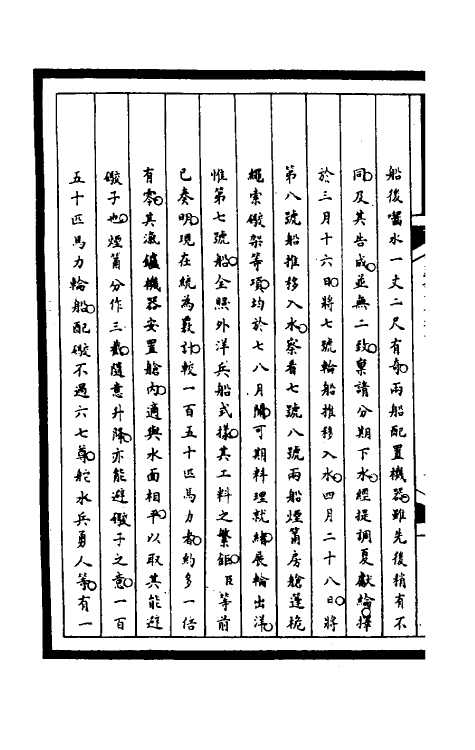 船後噏水一丈二尺有奇兩船配置機器雖先後稍有不
同及其告成並無二致稟請分期下水經提調夏獻綸擇
於三月十六日將七號輪船推移入水四月二十八日將
第八號船推移入水察看七號八號兩船煙筩房艙蓬桅
繩索礮架等項均於七八月間可期料理就緒展輪出洋
惟第七號船全照外洋兵船式樣其工料之繁鉅臣等前
已奏明現在統為覈計較一百五十匹馬力者約多一倍
有零其滊鑪機器安置艙內適與水面相平以取其能避
礮子也煙筩分作三截隨意升降亦能避礮子之意一百
五十匹馬力輪船配礮不過六七尊舵水兵勇人等有一